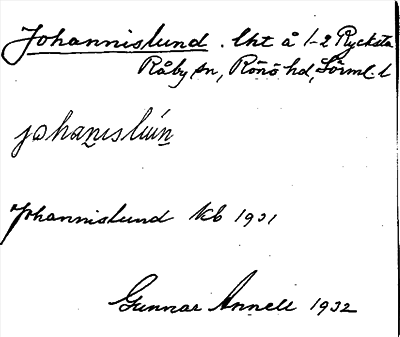 Johannislund. lht å 1-2 Rycksta
Råby sn, Rönö hd, Sörml. l
johani̲sluń̲
Johannislund kb 1931
Gunnar Annell 1932